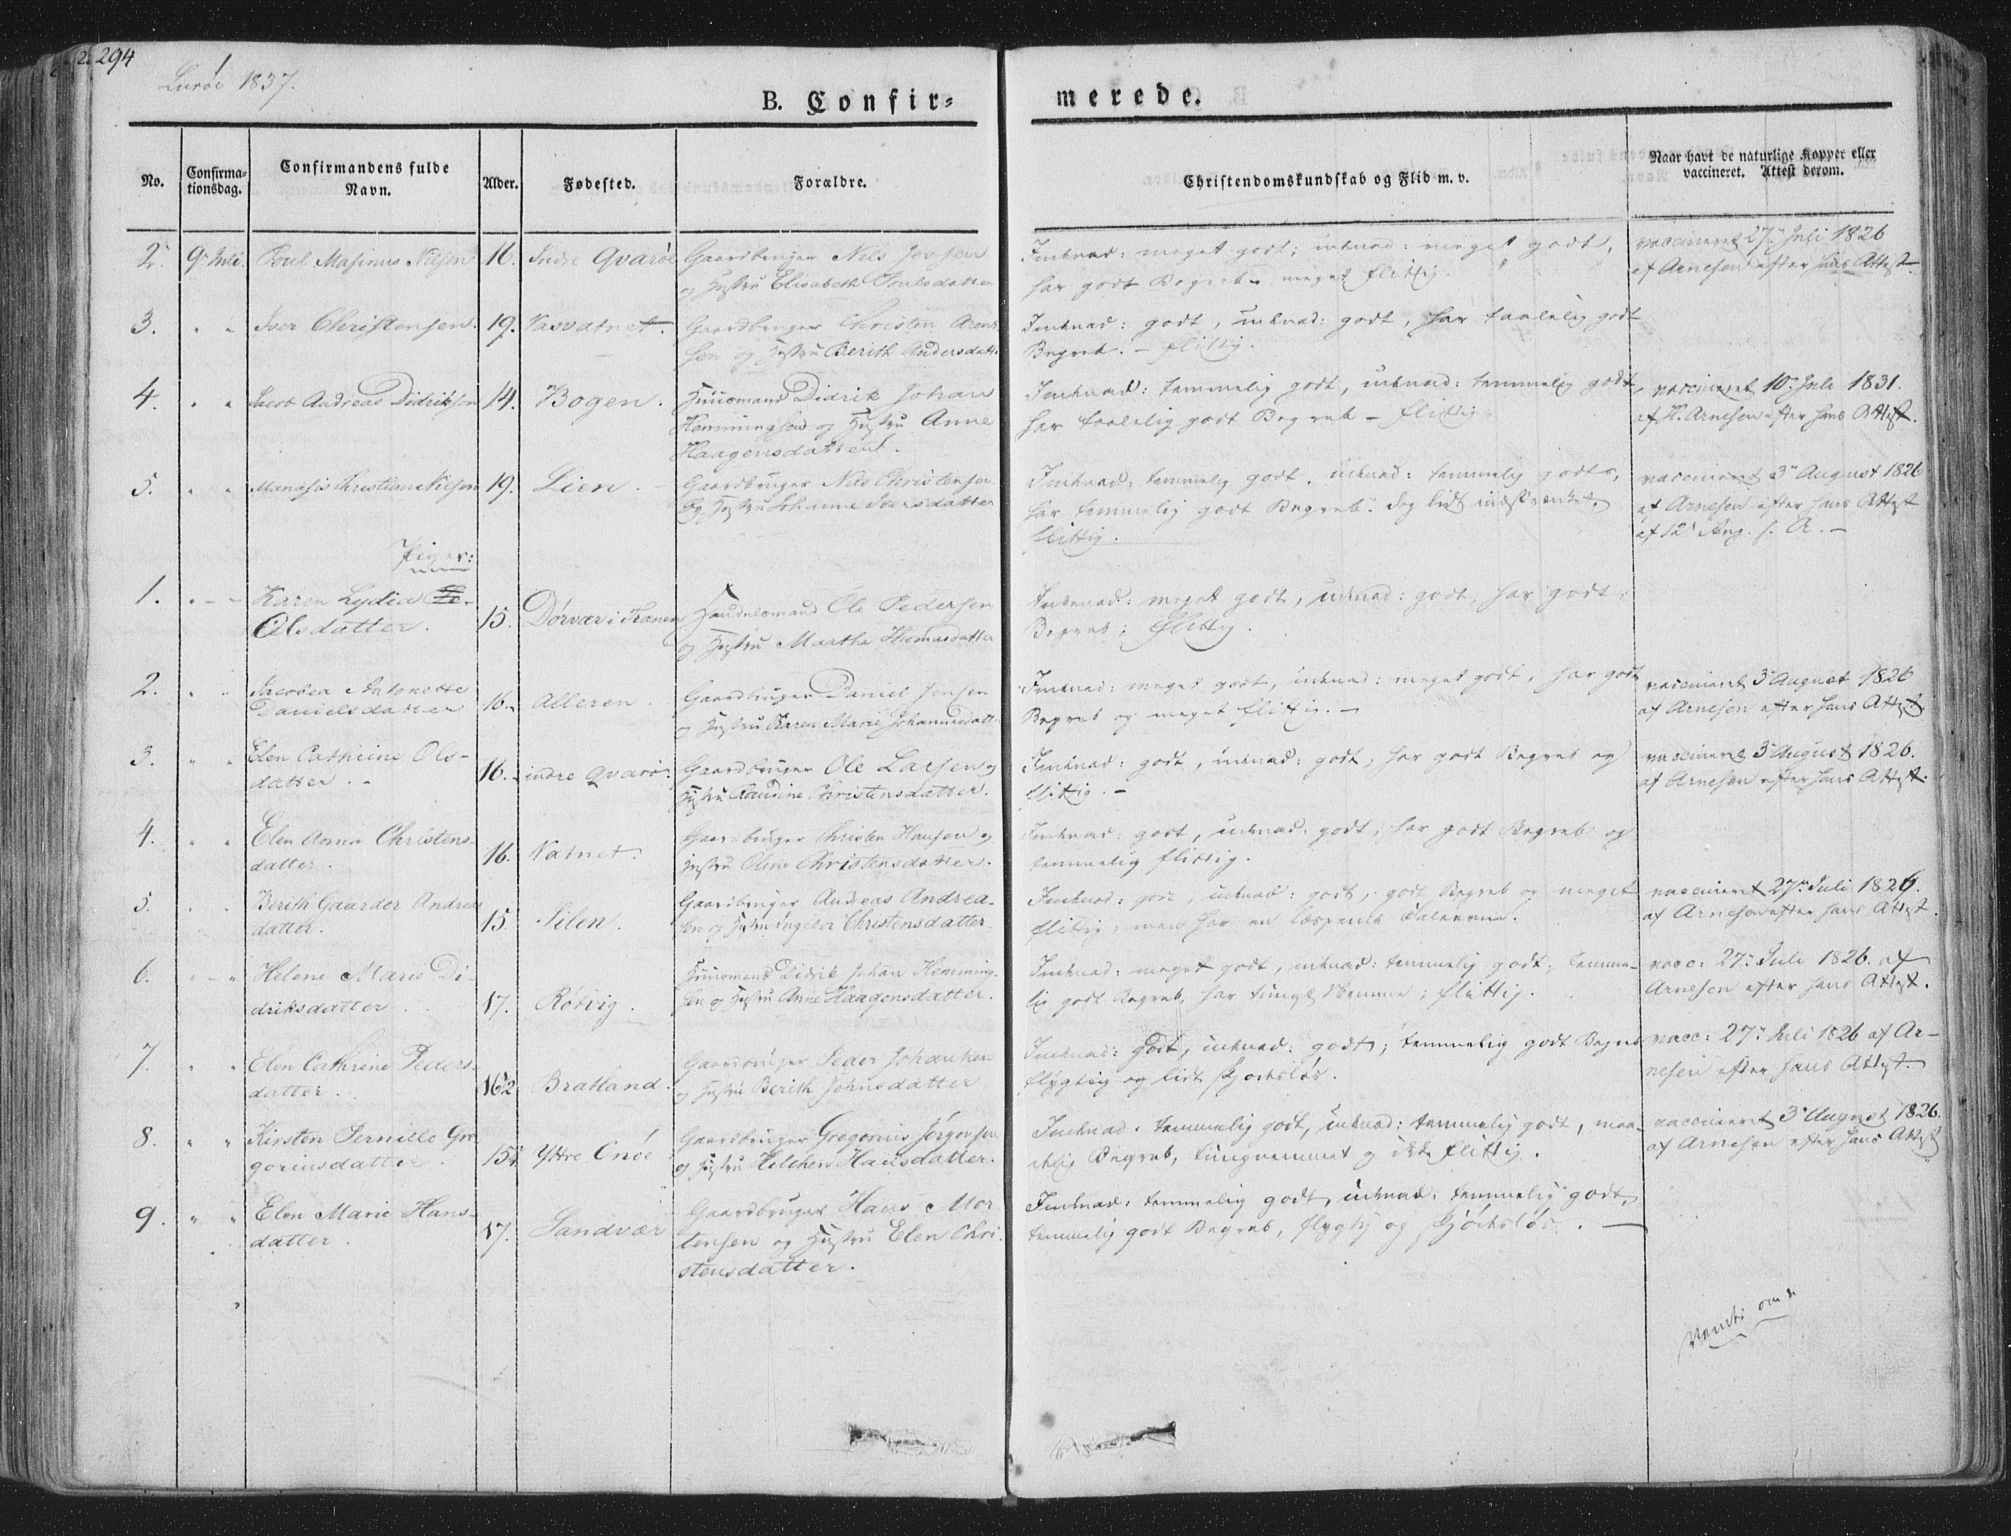 294
Lurøe 1837.
B. Confir=
merede.
No.
Confirma=
tionsdag.
Confirmandens fulde
Navn.
Alder.
Fødested.
Forældre.
Christendomskundskab og Flid m. v.
Naar havt de naturlige Kopper eller
vaccineret. Attest derom.
2. 9 Juli. Poul Masinus Nilsen 16. Indre Qvarøe Gaardbruger Nils Jensen
og Hustru Elisabeth Poulsdatter
meget godt; meget godt,
har godt Begreb meget flittig
vaccineret 27 Juli 1826
af Arnesen efter hans Attest.
3. Iver Christensen. 19. Vasvatnet. Gaardbruger Christen Arent-
sen og Hustru Berith Andersdatter
godt, godt, har taalelig godt
Begreb. - flittig.
4. Jacob Andreas Didriksen 14. Bogen. Huusmand Didrik Johan
Hemmingsen og Hustru Anne
Haagensdatter.
temmelig godt, temmelig godt,
har taalelig godt Begreb - flittig.
vaccineret 10 Juli 1831.
af H. Arnesen efter hans Attest.
5. Christian Nilsen 19. Lien. Gaardbruger Nils Christensen
og Hustru Johanne Iversdatter
temmelig godt, temmelig godt,
har temmelig godt Begreb. dog lidt indskrænket.
flittig.
vaccineret 3 August 1826
af Arnesen efter hans Attest
af 12 Aug. s. A. -
Piger:
1. Karen Lydia
Olsdatter. 15. Dørvær i Trænen Handelsmand Ole Pedersen
og Hustru Martha Thomasdatter
meget godt, godt, har godt
Begreb; flittig.
2. Jacobea Antonette
Danielsdatter 16. Alleren. Gaardbruger Daniel Jensen
og Hustru Karen Marie Johannesdatter
meget godt, meget godt, har godt
Begreb og meget flittig. -
vaccineret 3 August 1826
af Arnesen efter hans Attest
3. Elen Cathrine Ols-
datter. - 16. indre Qvarøe. Gaardbruger Ole Larsen og
Hustru Christensdatter.
godt, godt, har godt Begreb og
flittig. -
vaccineret 3 August 1826.
af Arnesen efter hans Attest.
4. Elen Anna Christens-
datter. 16. Vatnet. Gaardbruger Christen Hansen og
Hustru Oline Christensdatter.
godt, godt, har godt Begreb og
temmelig flittig.
5. Berith Gaarder Andreas
datter. 15. Silen. Gaardbruger Andreas Andrea-
sen og Hustru Ingebor Christensdatter.
godt, godt, godt Begreb og meget
flittig; men har en læspende
vaccineret 27 Juli 1826.
af Arnesen efter hans Attest.
6. Helene Marie Di-
driksdatter. 17. Røtvig. Huusmand Didrik Johan Hemming-
sen og Hustru Anne Haagensdatter.
meget godt, temmelig godt, temme-
lig godt Begreb, har tungt Nemme; flittig.
vacc: 27 Juli 1826. af
Arnesen efter hans Attest.
7. Elen Cathrine Peders-
datter. 16½ Bratland. Gaardbruger Peder Johansen
og Hustru Berith Johnsdatter
Godt, godt; temmelig godt Begreb
flygtig og lidt skjødesløs.
vacc: 27 Juli 1826 af Ar-
nesen efter hans Attest.
8. Kirsten Pernille Gre
goriusdatter. 15½ Yttre Onøe Gaardbruger Gregorius Jørgensen
og Hustru Hansdatter.
temmelig godt, temmelig godt, maa-
delig Begreb, tungnemmet og ikke flittig.
vaccineret 3 August 1826.
af Arnesen efter hans Attest
9. Elen Marie Hans-
datter. 17. Sandvær Gaardbruger Hans Mor
tensen og Hustru Elen Chri-
stensdatter.
temmelig godt, temmelig godt,
temmelig godt Begreb, flygtig og skjødesløs. -
Vendt om